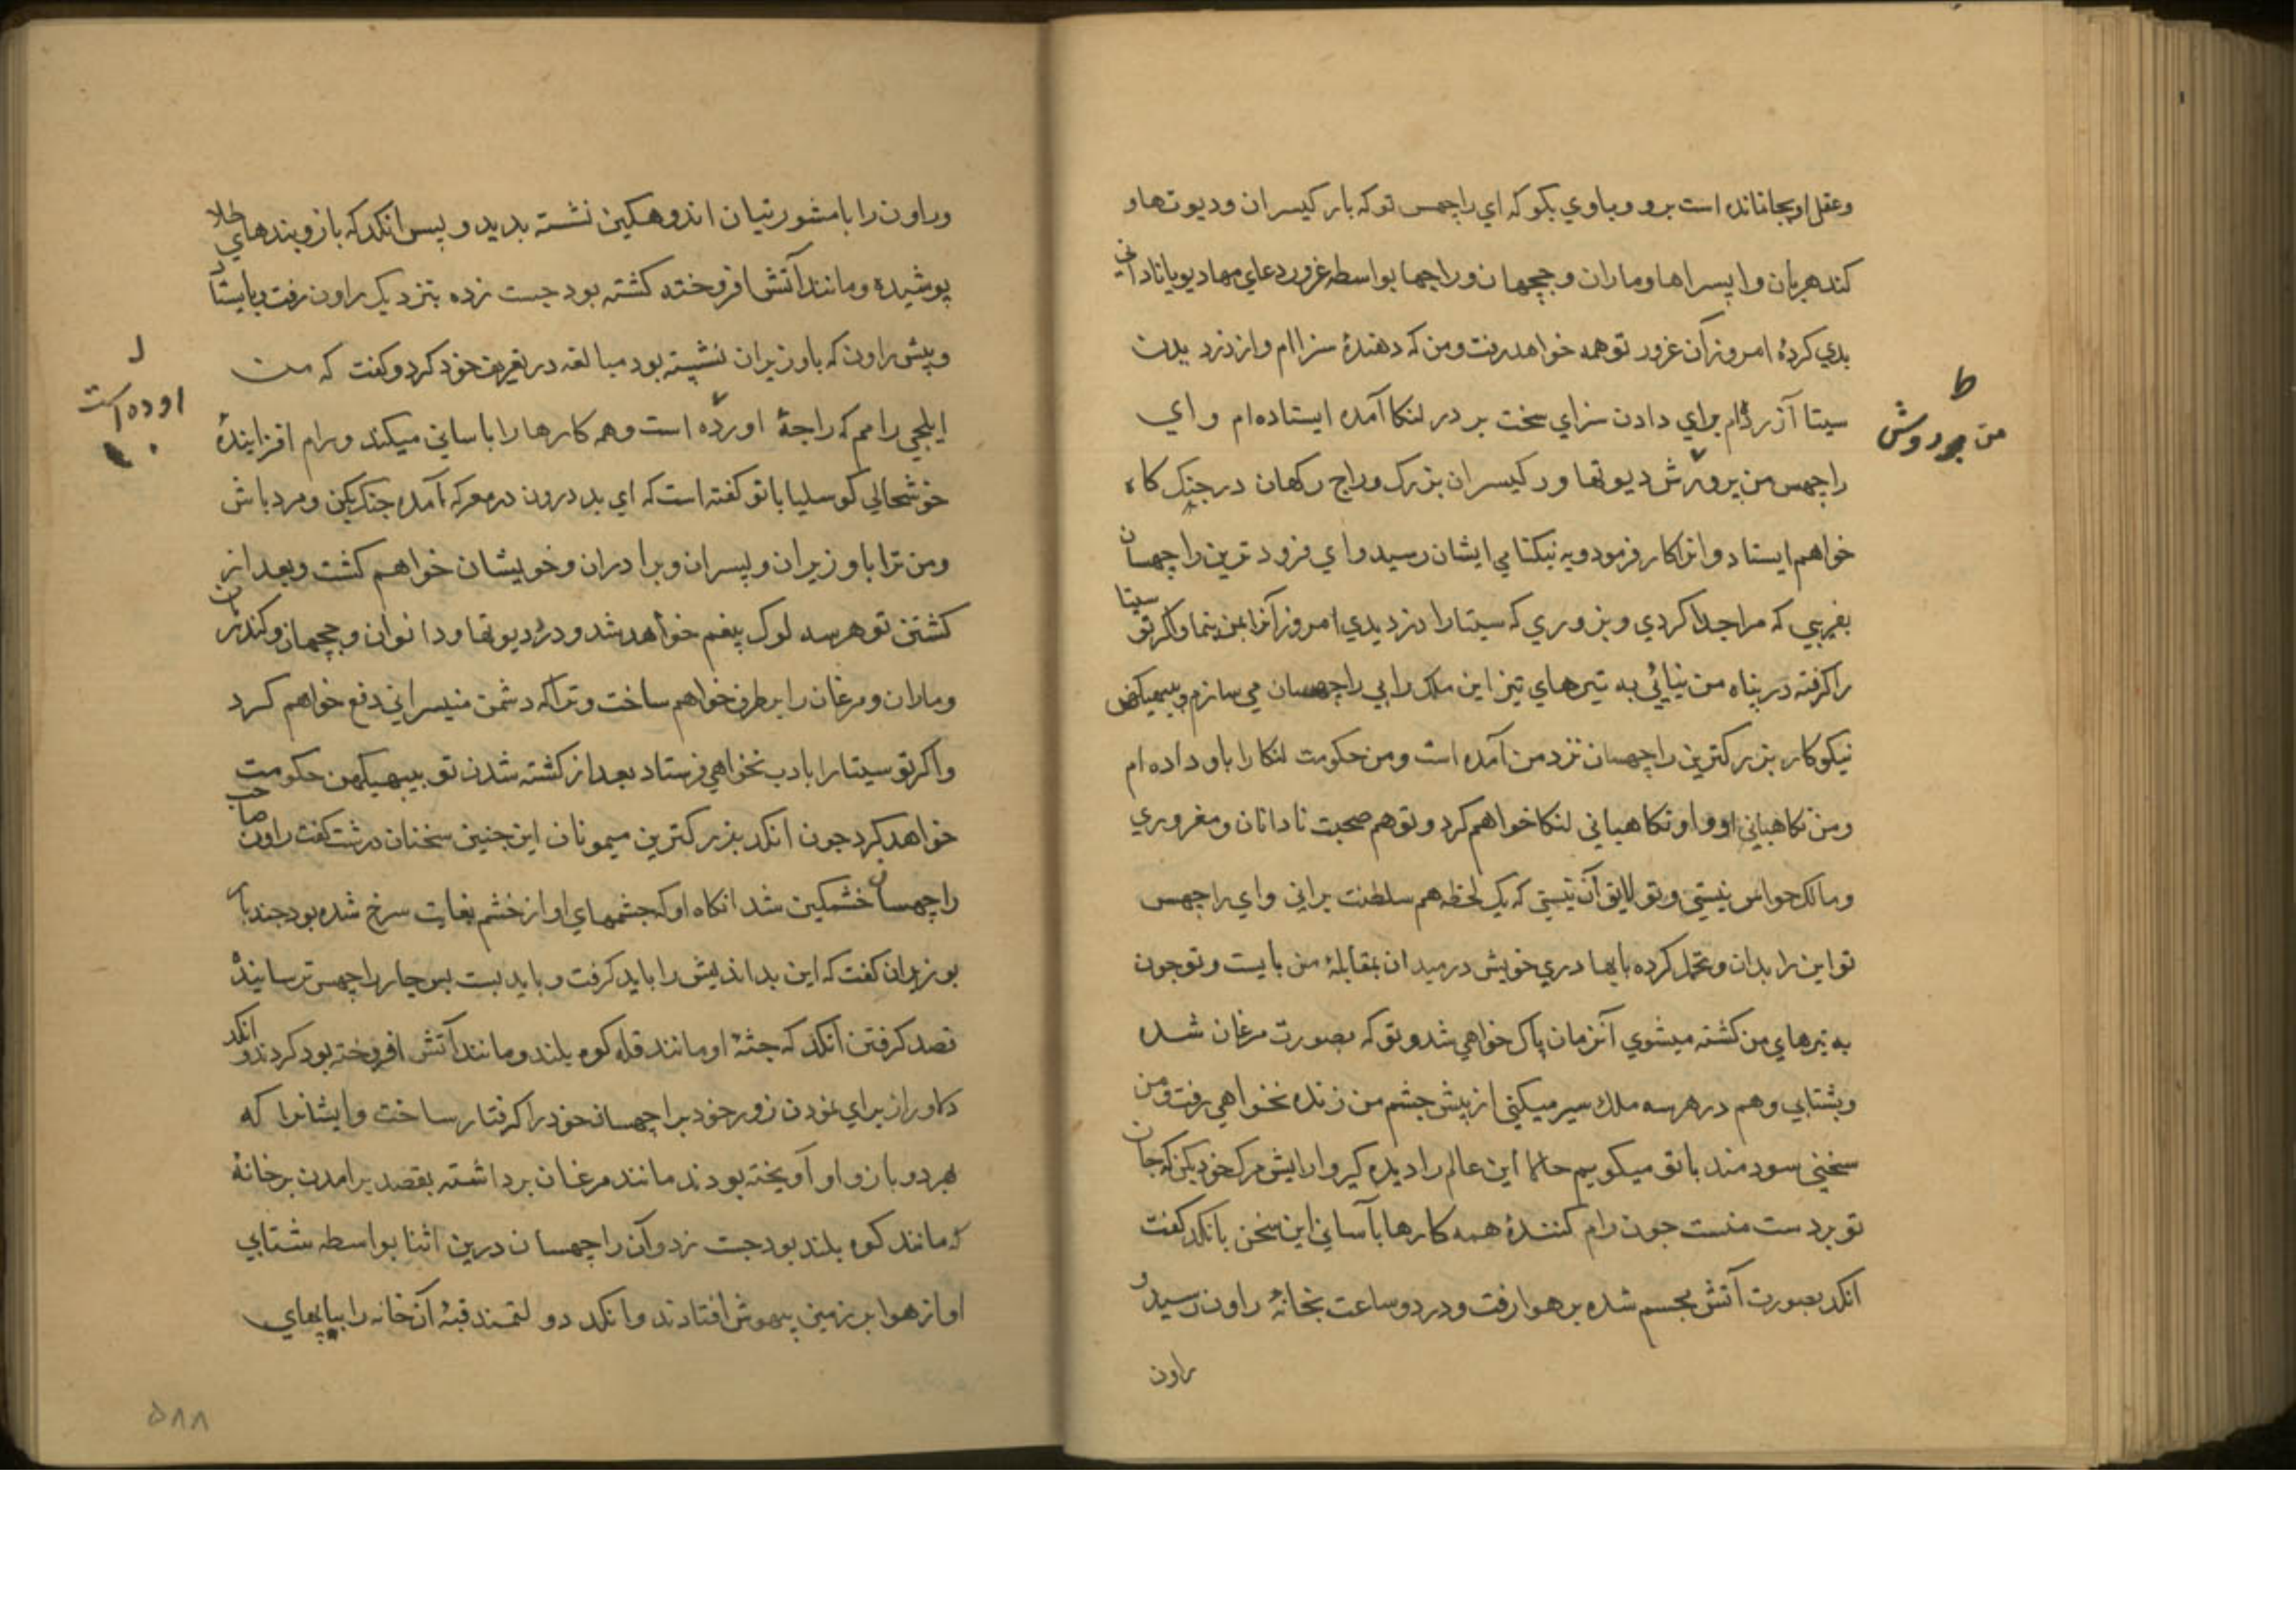 وعقل او بجا نمانده است برو و باوي بكو كه اي راچهس تو كه بار كيسران وديوتها و
كندهربان و اپسراها و ماران و جچهان و راجها بواسطه غرور دعاي مهاديو يا ناداني
بدي كردهٔ امروز آن غرور تو همه خواهد رفت ومن كه دهندهٔ سزاام واز دزديدن
سيتا آزرده‌ام براي دادن سزاي سخت بر در لنكا آمده ايستاده ام واي
ط
من بر روش
راچهس من بر روش ديوتها و ركيسران بزرك وراج ركهان در جنك كاه
خواهم ايستاد وانرا كار فرمود وبه نيكنامي ايشان رسيد واي فرودترين راچهسان
بفريبي كه مرا جدا كردي وبزوري كه سيتا را دزديدي امروز آنرا بمن بنما واكر تو سيتا
را كرفته در پناه من نيائي به تيرهاي تيز اين ملك را بي راچهسان مي سازم وبيبهيكهن
نيكوكار بزركترين راچهسان نزد من آمده است ومن حكومت لنكا را باو داده ام
ومن نكاهباني او و او نكاهباني لنكا خواهم كرد وتو هم صحبت نادانان ومغروري
ومالك حواس نيستي وتو لايق آن نيستي كه يك لحظه هم سلطنت براني واي راچهس
تو اين را بدان وتحمل كرده با بهادري خويش در ميدان بمقابلهٔ من بايست وتو چون
به تيرهاي من كشته ميشوي آنزمان پاك خواهي شد وتو كه بصورت مرغان شده
وبشتابي وهم در هرسه ملك سير ميكني از پيش چشم من زنده نخواهي رفت ومن
سخني سودمند با تو ميكويم حالا اين عالم را ديده كير و ارايش مرك خود بكن كه جان
تو بر دست منست چون رام كنندهٔ همه كارها بآساني اين سخن بانكد كفت
انكد بصورت آتش مجسم شده بر هوا رفت ودر دو ساعت بخانهٔ راون رسيد و
راون
وراون را با مشورتيان اندوهكين نشسته بديد و پس انكد كه بازوبندهاي طلا
پوشيده ومانند آتش افروخته كشته بود جست زده بنزديك راون رفت وبايستاد
وپيش راون كه با وزيران نشسته بود مبالغه در تعريف خود كرد وكفت كه من
ل
اوده است
ايلچي رامم كه راجهٔ اورده است وهمه كارها را باساني ميكند ورام افزايندهٔ
خوشحالي كوسليا با تو كفته است كه اي بد درون در معركه آمده جنك بكن ومرد باش
ومن ترا با وزيران وپسران وبرادران وخويشان خواهم كشت وبعد از
كشتن تو هرسه لوك بيغم خواهد شد ودرد ديوتها ودانوان وجچهان وكندهربان
وماران ومرغان را برطرف خواهم ساخت وترا كه دشمن منيسراني دفع خواهم كرد
واكر تو سيتا را بادب نخواهي فرستاد بعد از كشته شدن تو بيبهيكهن حكومت
خواهد كرد چون انكد بزركترين ميمونان اين چنين سخنان درشت كفت راون صاحب
راچهسان خشمكين شد انكاه او كه چشمهاي او از خشم بغايت سرخ شده بود چند بار
بوزيران كفت كه اين بدانديش را بايد كرفت وبايد بست پس چار راچهس ترسانندهٔ
قصد كرفتن انكد كه جثهٔ او مانند قله كوه بلند ومانند آتش افروخته بود كردند وانكد
دلاور از براي نمودن زور خود براچهسان خود را كرفتار ساخت وايشانرا كه
بهر دو بازو او آويخته بودند مانند مرغان برداشته بقصد برامدن بر خانهٔ
كه مانند كوه بلند بود جست زد وآن راچهسان درين اثنا بواسطه شتابي
او از هوا بر زمين بيهوش افتادند وانكد دولتمند قبهٔ آن خانه را بپايهاي
۵۸۸